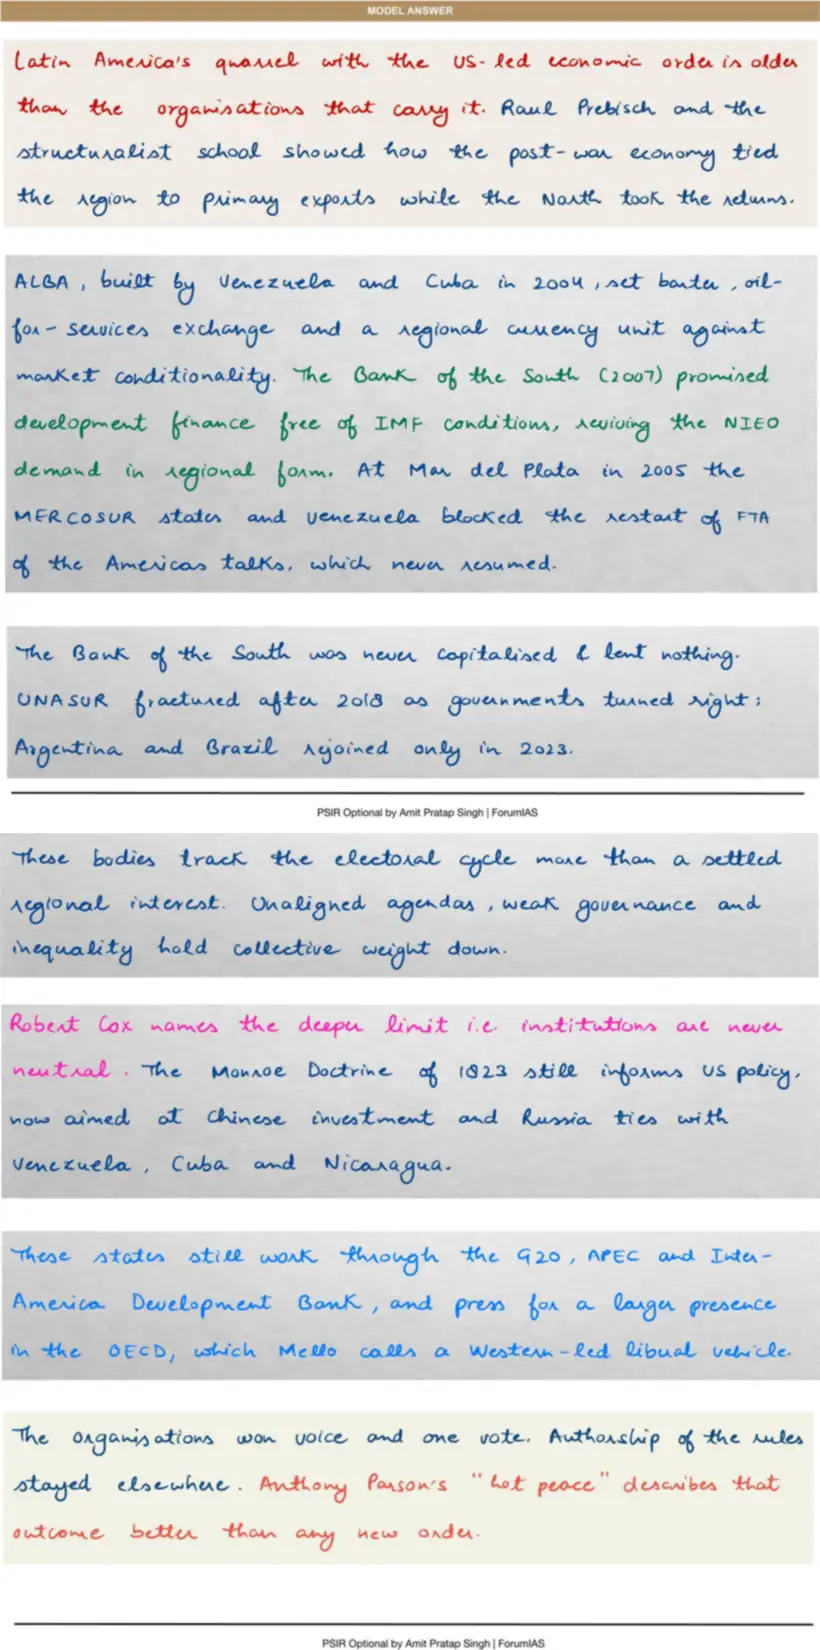 MODEL ANSWER
Latin America's quarrel with the US-led economic order is older
than the organisations that carry it. Raul Prebisch and the
structuralist school showed how the post-war economy tied
the region to primary exports while the North took the returns.
ALBA, built by Venezuela and Cuba in 2004, set barter, oil-
for-services exchange and a regional currency unit against
market conditionality. The Bank of the South (2007) promised
development finance free of IMF conditions, reviving the NIEO
demand in regional form. At Mar del Plata in 2005 the
MERCOSUR states and Venezuela blocked the restart of FTA
of the Americas talks, which never resumed.
The Bank of the South was never capitalised & lent nothing.
UNASUR fractured after 2018 as governments turned right;
Argentina and Brazil rejoined only in 2023.
PSIR Optional by Amit Pratap Singh | ForumIAS
These bodies track the electoral cycle more than a settled
regional interest. Unaligned agendas, weak governance and
inequality hold collective weight down.
Robert Cox names the deeper limit i.e. institutions are never
neutral. The Monroe Doctrine of 1823 still informs US policy,
now aimed at Chinese investment and Russia ties with
Venezuela, Cuba and Nicaragua.
These states still work through the G20, APEC and Inter-
America Development Bank, and press for a larger presence
in the OECD, which Mello calls a Western-led libual vehicle.
The organisations won voice and one vote. Authorship of the rules
stayed elsewhere. Anthony Parson's "hot peace" describes that
outcome better than any new order.
PSIR Optional by Amit Pratap Singh | ForumIAS